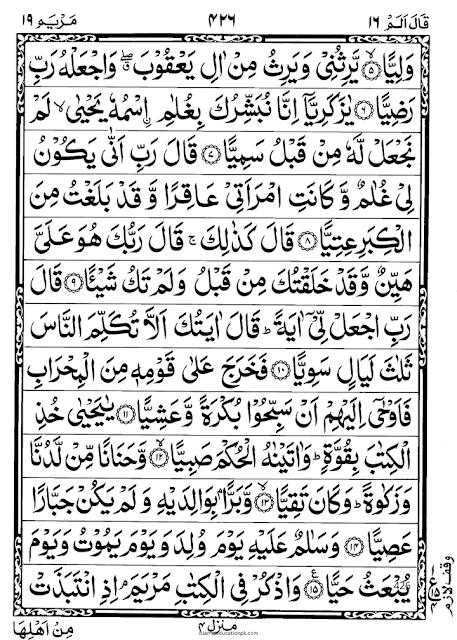 قَالَ اَلَمْ ١٦ ٤٢٦ مَرْيَم ١٩
وَلِيًّا ۙ﴿۵﴾ يَّرِثُنِيْ وَيَرِثُ مِنْ اٰلِ يَعْقُوْبَ ۖ وَاجْعَلْهُ رَبِّ
رَضِيًّا ﴿۶﴾ يٰزَكَرِيَّاۤ اِنَّا نُبَشِّرُكَ بِغُلٰمِ ۟اسْمُهٗ يَحْيٰى ۙ لَمْ
نَجْعَلْ لَّهٗ مِنْ قَبْلُ سَمِيًّا ﴿۷﴾ قَالَ رَبِّ اَنّٰى يَكُوْنُ
لِيْ غُلٰمٌ وَّ كَانَتِ امْرَاَتِيْ عَاقِرًا وَّ قَدْ بَلَغْتُ مِنَ
الْكِبَرِ عِتِيًّا ﴿۸﴾ قَالَ كَذٰلِكَ ۚ قَالَ رَبُّكَ هُوَ عَلَيَّ
هَيِّنٌ وَّقَدْ خَلَقْتُكَ مِنْ قَبْلُ وَلَمْ تَكُ شَيْـًٔا ﴿۹﴾ قَالَ
رَبِّ اجْعَلْ لِّيْۤ اٰيَةً ؕ قَالَ اٰيَتُكَ اَلَّا تُكَلِّمَ النَّاسَ
ثَلٰثَ لَيَالٍ سَوِيًّا ﴿۱۰﴾ فَخَرَجَ عَلٰى قَوْمِهٖ مِنَ الْمِحْرَابِ
فَاَوْحٰۤى اِلَيْهِمْ اَنْ سَبِّحُوْا بُكْرَةً وَّعَشِيًّا ﴿۱۱﴾ يٰيَحْيٰى خُذِ
الْكِتٰبَ بِقُوَّةٍ ؕ وَاٰتَيْنٰهُ الْحُكْمَ صَبِيًّا ۙ﴿۱۲﴾ وَّحَنَانًا مِّنْ لَّدُنَّا
وَزَكٰوةً ؕ وَكَانَ تَقِيًّا ۙ﴿۱۳﴾ وَّبَرًّۢا بِوَالِدَيْهِ وَلَمْ يَكُنْ جَبَّارًا
عَصِيًّا ﴿۱۴﴾ وَسَلٰمٌ عَلَيْهِ يَوْمَ وُلِدَ وَيَوْمَ يَمُوْتُ وَيَوْمَ
يُبْعَثُ حَيًّا ﴿۱۵﴾ وَاذْكُرْ فِي الْكِتٰبِ مَرْيَمَ ۘ اِذِ انْتَبَذَتْ
وقف لازم
مِنْ اَهْلِهَا
منزل ٤
islamiceducationpk.com